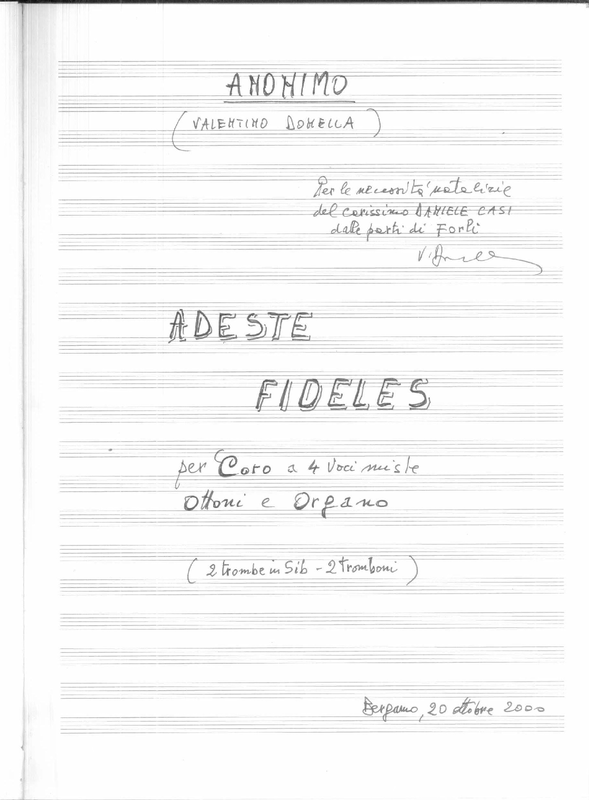 ANONIMO
(VALENTINO DONELLA)
Per le necessità natalizie
del carissimo DANIELE CASI
dalle parti di Forlì
ADESTE
FIDELES
per Coro a 4 voci miste
Ottoni e Organo
(2 trombe in Sib - 2 tromboni)
Bergamo, 20 ottobre 2000